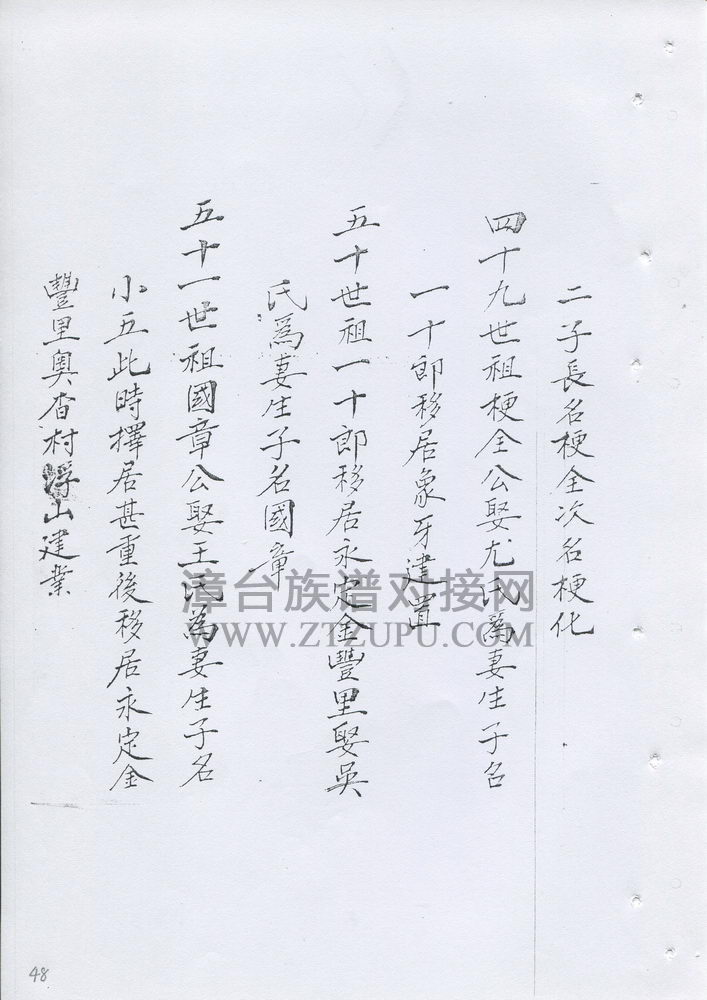 二子長名梗全次名梗化
四十九世祖梗全公娶尤氏爲妻生子名
一十郎移居象牙建置
五十世祖一十郎移居永定金豐里娶吳
氏爲妻生子名國章
五十一世祖國章公娶王氏爲妻生子名
小五此時擇居甚重後移居永定金
豐里奧杳村浮山建業
漳台族谱对接网
WWW.ZTZUPU.COM
48